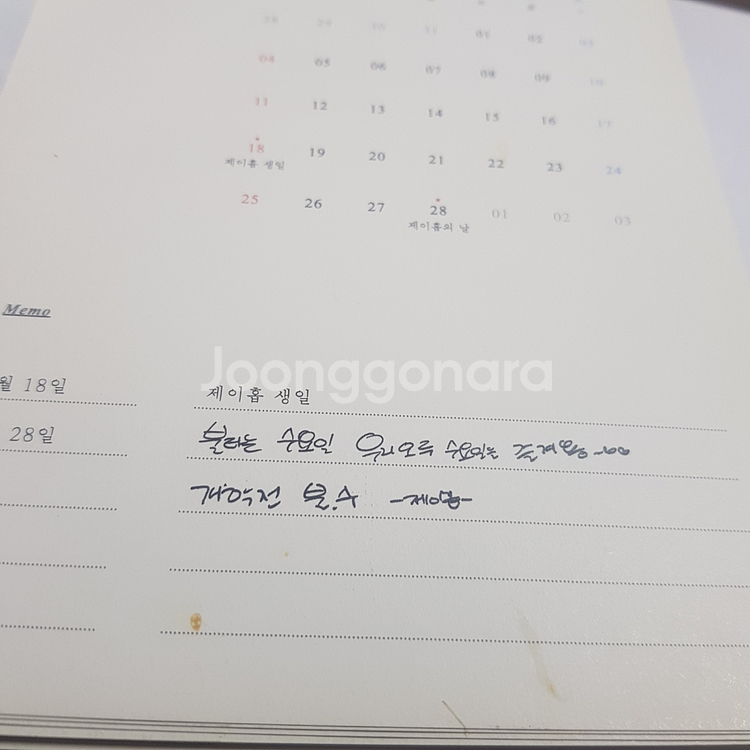 28 29 30 31 01 02 03
04 05 06 07 08 09 10
11 12 13 14 15 16 17
18 19 20 21 22 23 24
제이홉 생일
25 26 27 28 01 02 03
제이홉의 날
Memo
Joonggonara
월 18일 제이홉 생일
28일 불타는 수요일 수요일은
불.수 -제이홉-